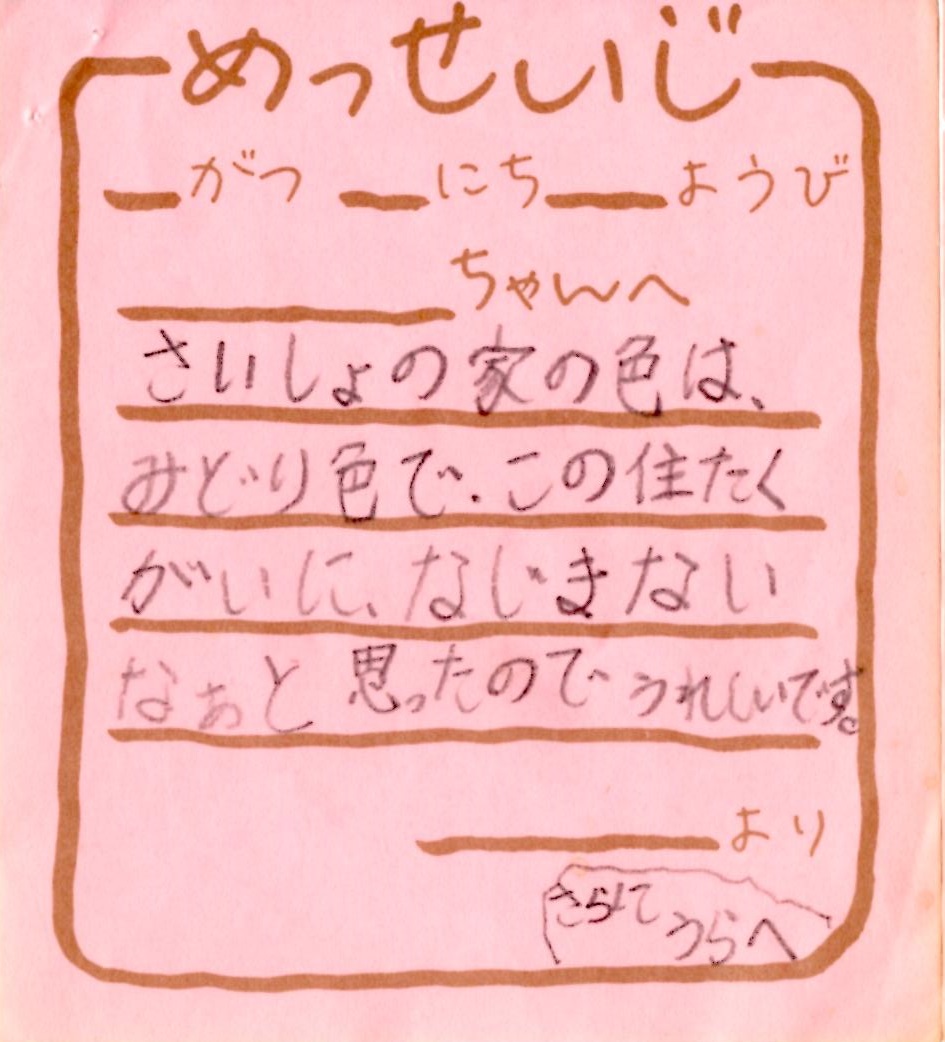 めっせいじ
がつ にち ようび
ちゃんへ
さいしょの家の色は、
みどり色で、この住たく
がいに、なじまない
なぁと思ったのでうれしいです。
より
うらへ